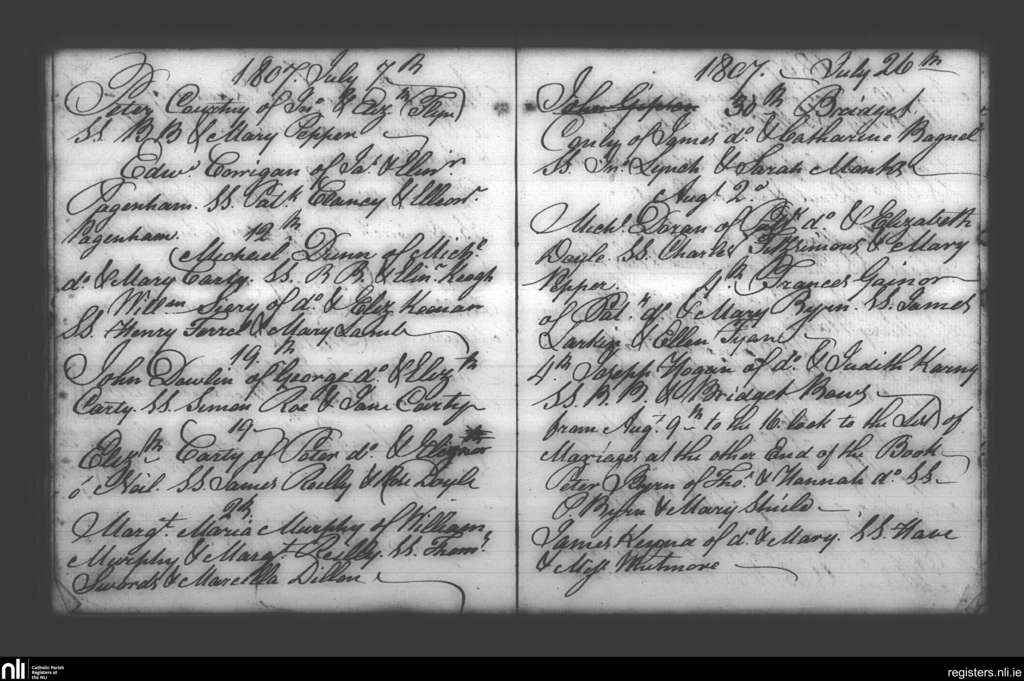 1807. July 7th
Peter Courtny of Jno & Eliz.th Flyn
SS. B B & Mary Pepper
Edwd Corrigan of Jas. & Elinr.
Pagenham. SS. Patk Clancey & Elleonr.
Pagenham. 12th
Michael Dunn of Michl
do. & Mary Carty. SS. B. B. & Elinr. Keogh
Willm of do. & Eliz. Keenan
SS. Henry Ferrel & Mary
19th
John Dowlin of George do. & Elizth
Carty. SS. Simon Roe & Jane Carty
19
Elizth Carty of Peter do. & Elegnor
o' Neil. SS. James Reilly & Rose Doyle
Margt. Maria Murphy of William
Murphy & Margt. Reilly. SS. Thoms.
Swords & Marcella Dillon
1807. July 26th
John Gipson 30th Bridget
of James do. & Catharine Bagnel
SS. Jno. Lynch & Sarah Manks
Augt 2d
Michl. Doran of Patk do. & Elizabeth
Doyle. SS. Charls Fitzsimons & Mary
Pepper. 4th Frances Gainor
of Pat. do. & Mary Byrn. SS. James
Larkin & Ellen
4th Joseph Hogan of do. & Judith Karny
SS. B. B. & Bridget
from Augt. 9th to the 16. look to the List of
Mariages at the other End of the Book
Peter Byrn of Thos. & Hannah do. SS.
P. Byrn & Mary Shield
James of do. & Mary. SS.
& Miss Whitmore
nli Catholic Parish
Registers at
the NLI
registers.nli.ie